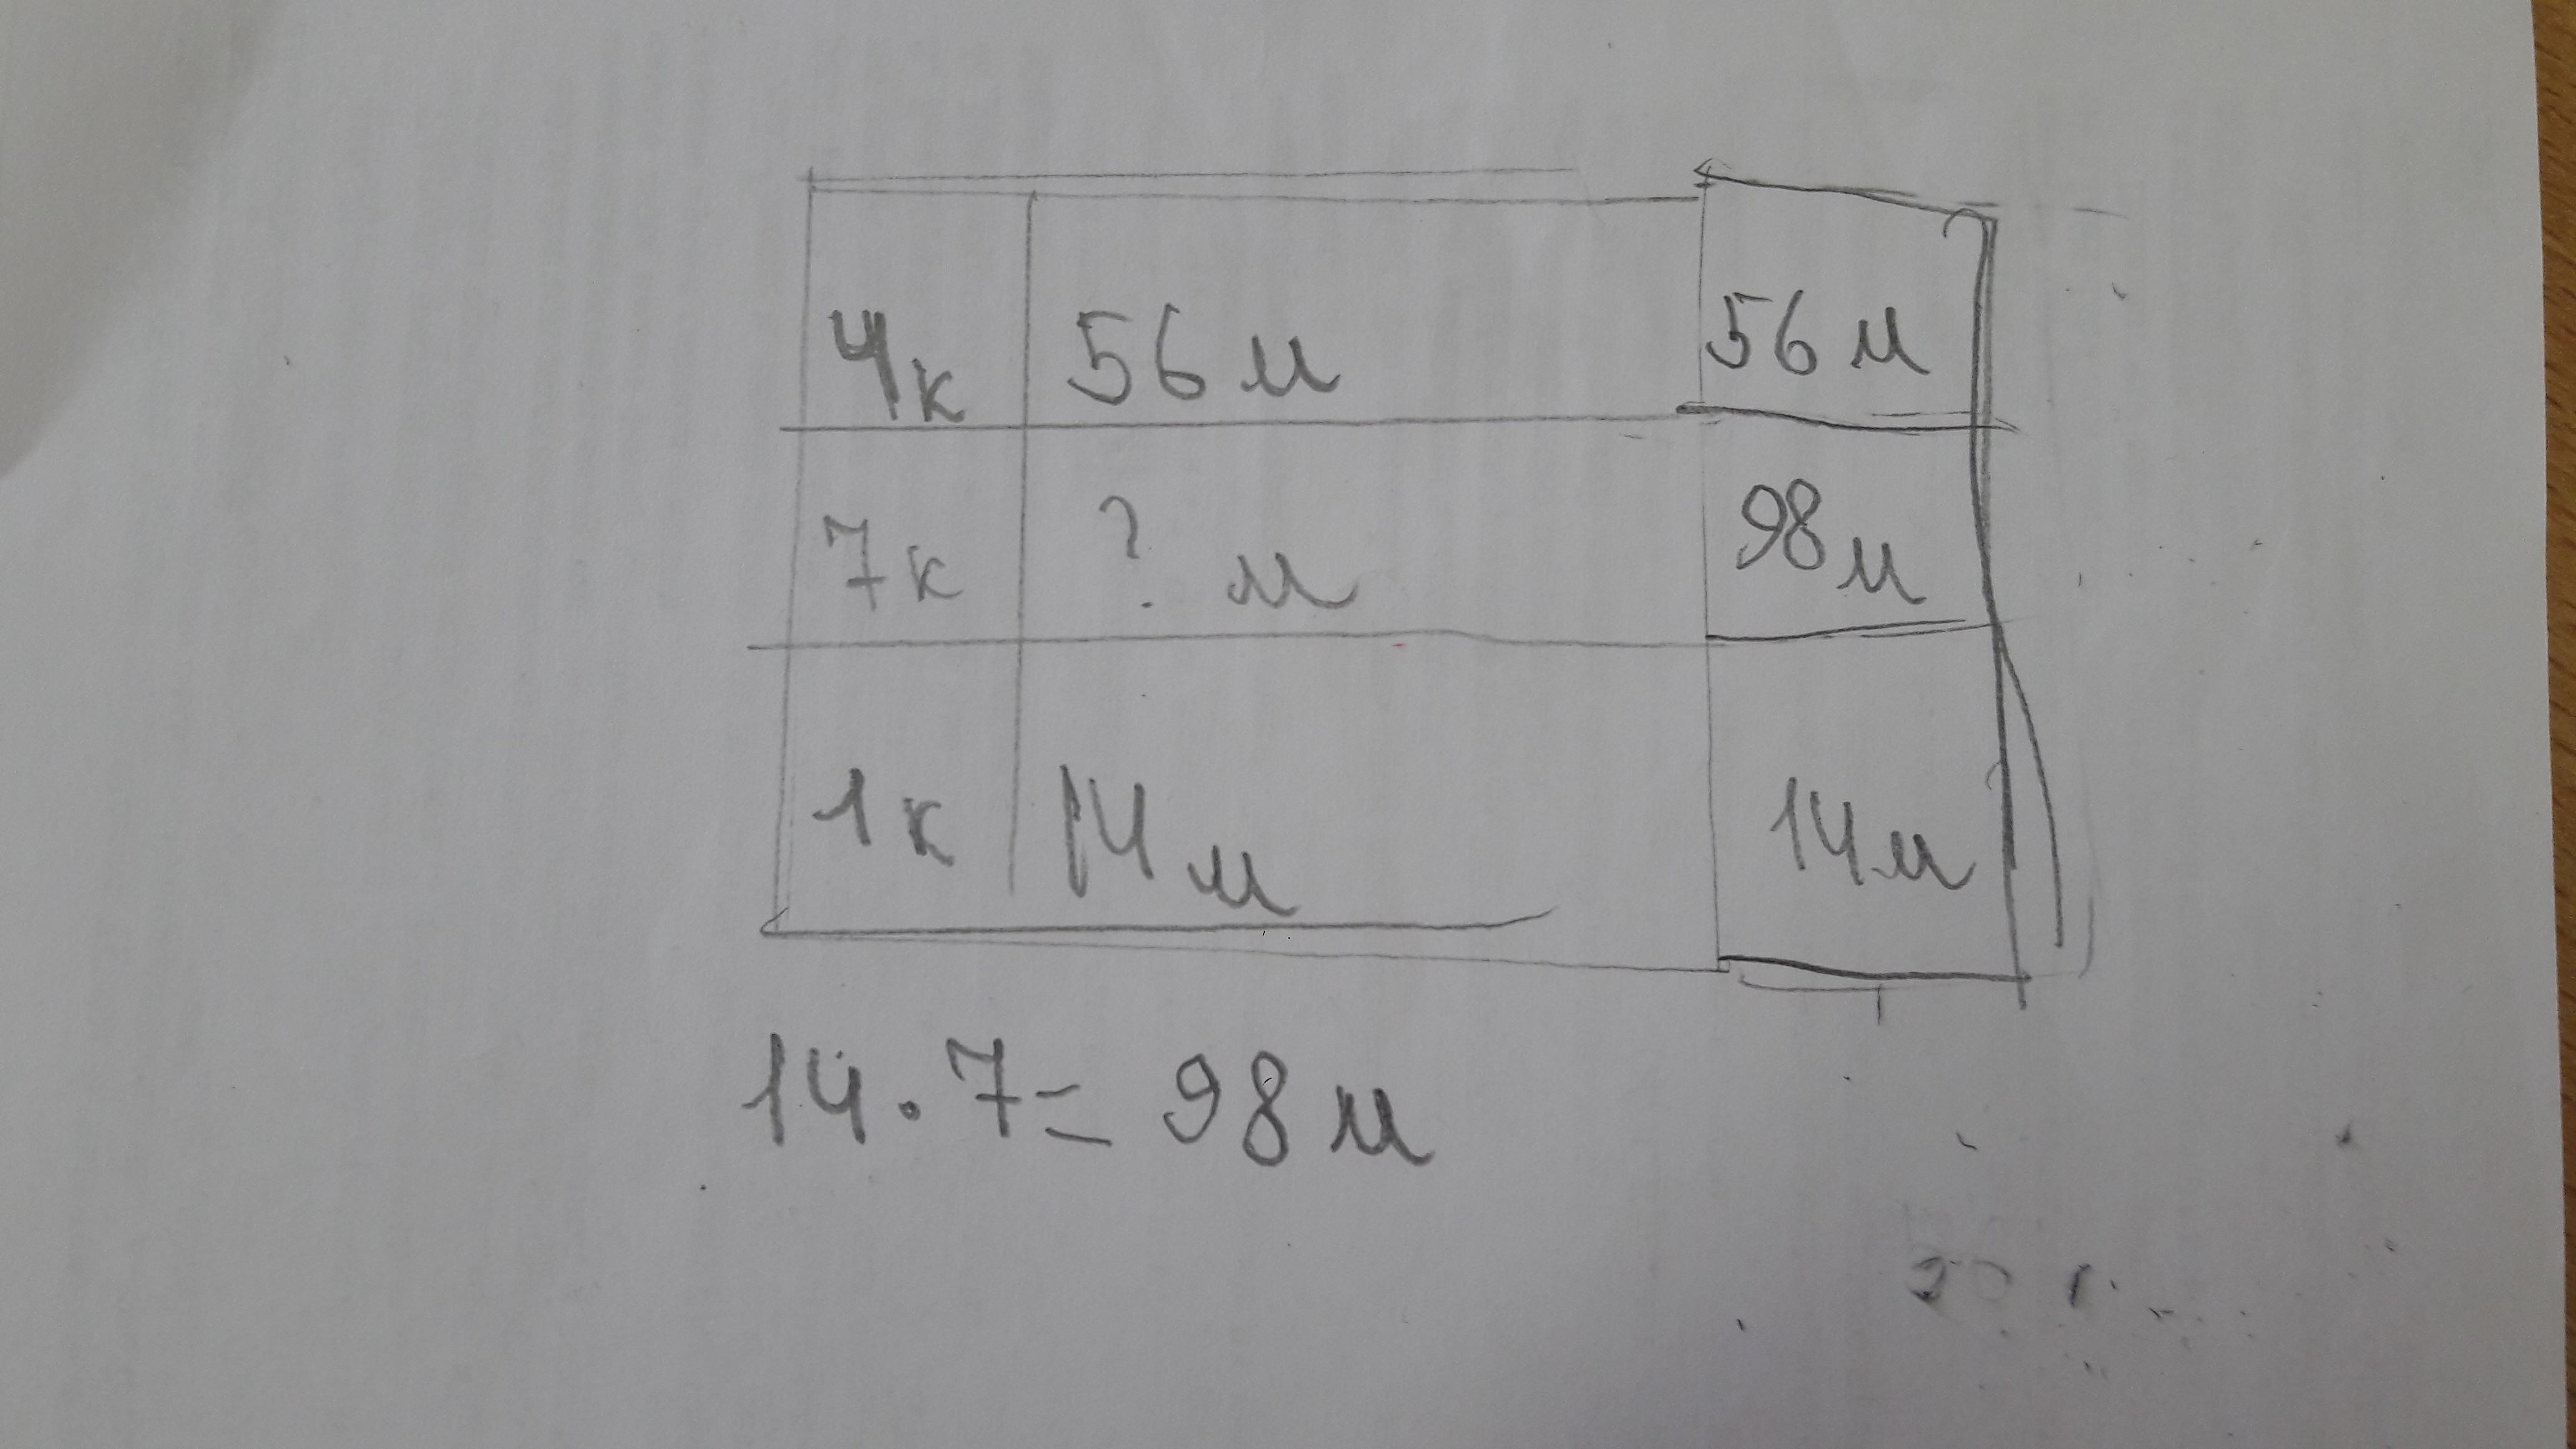 4к 56 м 56 м
7к ? м 98 м
1к 14 м 14 м
14 · 7 = 98 м